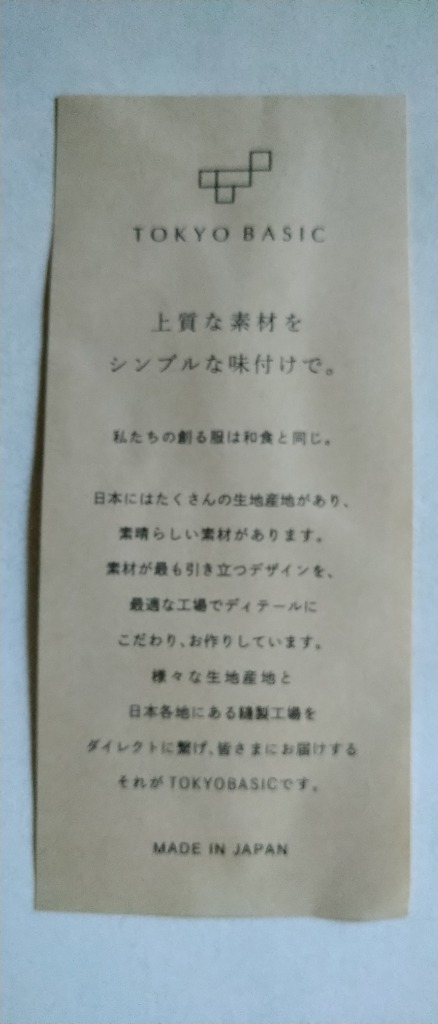 TOKYO BASIC
上質な素材を
シンプルな味付けで。
私たちの創る服は和食と同じ。
日本にはたくさんの生地産地があり、
素晴らしい素材があります。
素材が最も引き立つデザインを、
最適な工場でディテールに
こだわり、お作りしています。
様々な生地産地と
日本各地にある縫製工場を
ダイレクトに繋げ、皆さまにお届けする
それがTOKYOBASICです。
MADE IN JAPAN